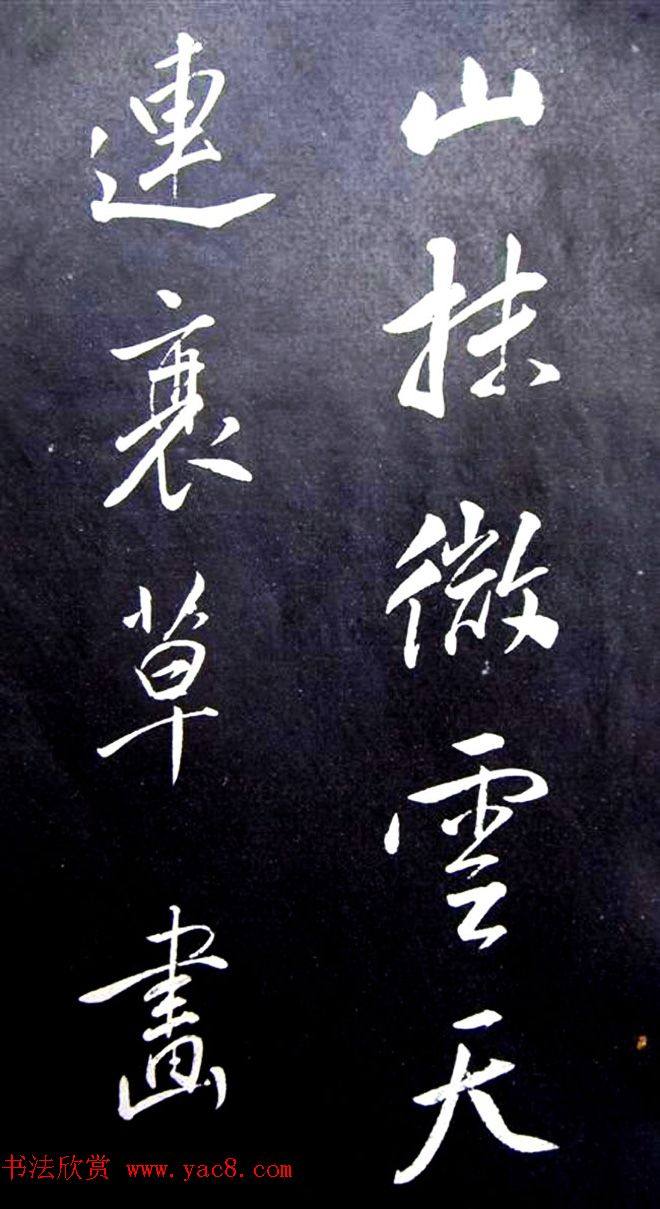 山抹微雲天
連衰草畫
书法欣赏 www.yac8.com